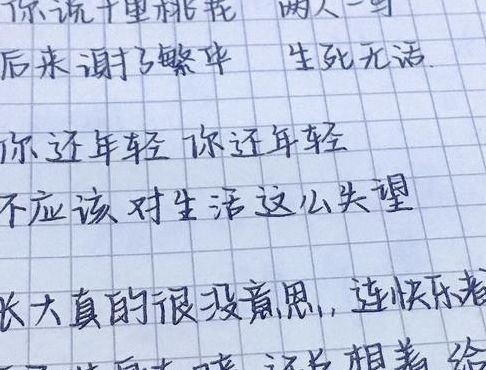 你说十里桃花 两人一马
后来谢了繁华 生死无话.
你还年轻 你还年轻
不应该对生活这么失望
长大真的很没意思,,连快乐都
相着 给